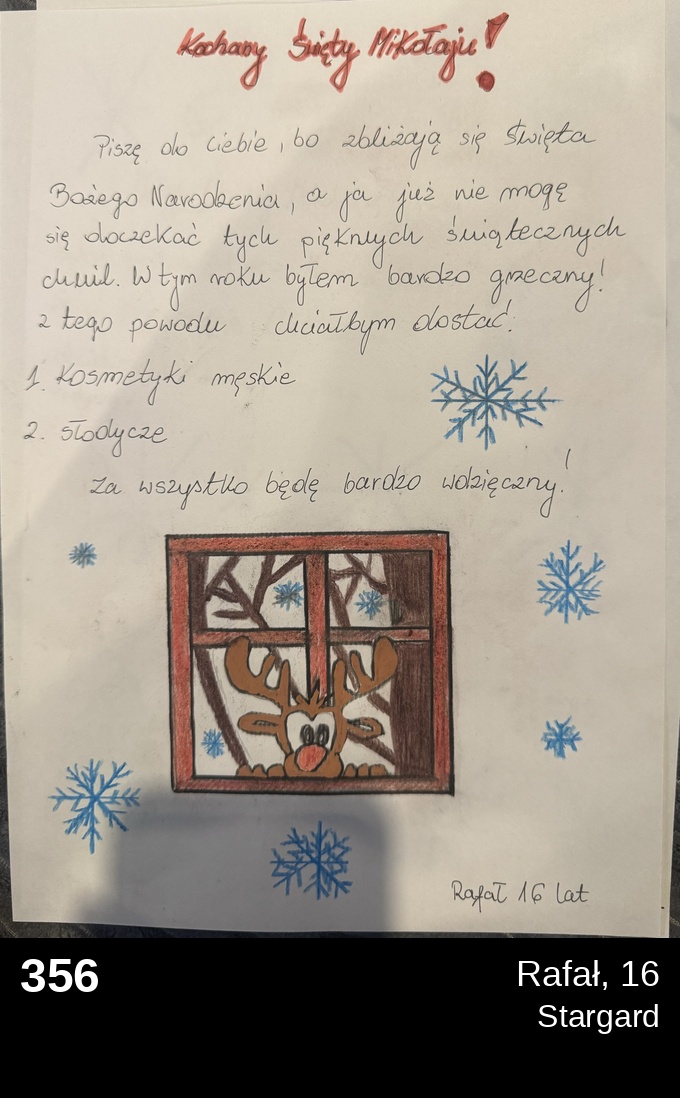 Kochany Święty Mikołaju!
Piszę do ciebie, bo zbliżają się Święta
Bożego Narodzenia, a ja już nie mogę
się doczekać tych pięknych świątecznych
chwil. W tym roku byłem bardzo grzeczny!
z tego powodu chciałbym dostać:
1. Kosmetyki męskie
2. słodycze
Za wszystko będę bardzo wdzięczny!
Rafał 16 lat
356
Rafał, 16
Stargard